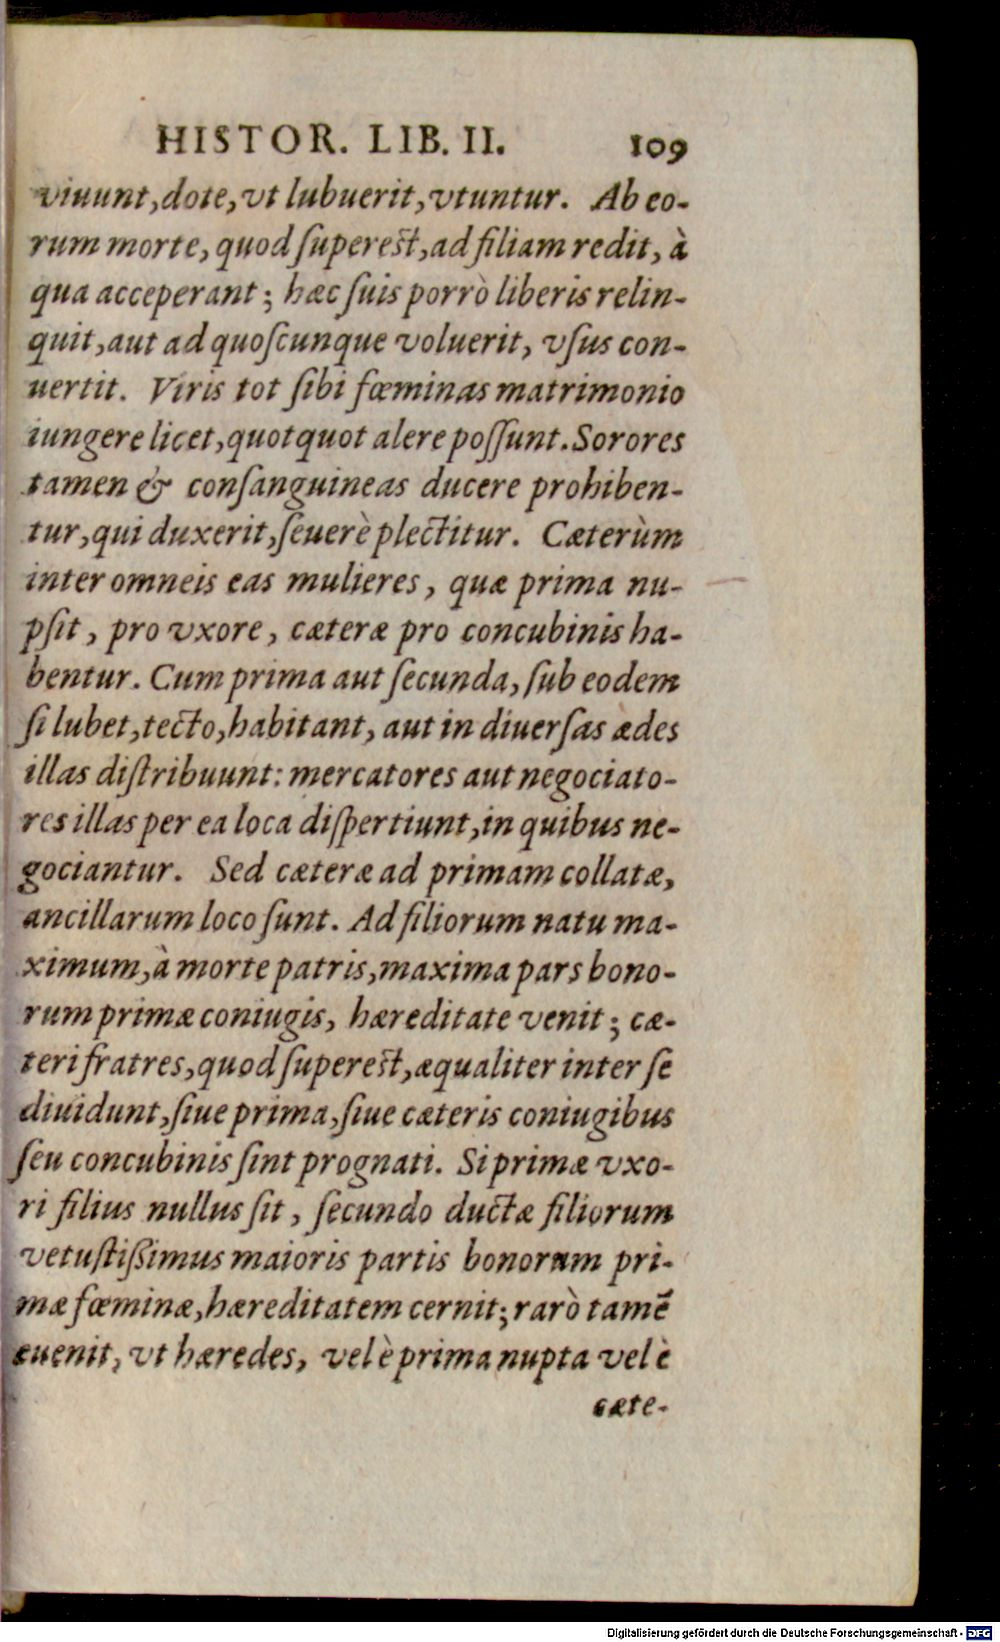 HISTOR. LIB. II. 109
viuunt, dote, vt lubuerit, vtuntur. Ab eo-
rum morte, quod ſupereſt, ad filiam redit, à
qua acceperant; hæc ſuis porrò liberis relin-
quit, aut ad quoſcunque voluerit, vſus con-
uertit. Viris tot ſibi fœminas matrimonio
iungere licet, quotquot alere poſſunt. Sorores
tamen & conſanguineas ducere prohiben-
tur, qui duxerit, ſeuerè plectitur. Cæterùm
inter omneis eas mulieres, quæ prima nu-
pſit, pro vxore, cæteræ pro concubinis ha-
bentur. Cum prima aut ſecunda, ſub eodem
ſi lubet, tecto, habitant, aut in diuerſas ædes
illas diſtribuunt: mercatores aut negociato-
res illas per ea loca diſpertiunt, in quibus ne-
gociantur. Sed cæteræ ad primam collatæ,
ancillarum loco ſunt. Ad filiorum natu ma-
ximum, à morte patris, maxima pars bono-
rum primæ coniugis, hæreditate venit; cæ-
teri fratres, quod ſupereſt, æqualiter inter ſe
diuidunt, ſiue prima, ſiue cæteris coniugibus
ſeu concubinis ſint prognati. Si primæ vxo-
ri filius nullus ſit, ſecundo ductæ filiorum
vetuſtiſsimus maioris partis bonorum pri-
mæ fœminæ, hæreditatem cernit; rarò tamē
euenit, vt hæredes, vel è prima nupta vel è
cæte-
Digitalisierung gefördert durch die Deutsche Forschungsgemeinschaft - DFG